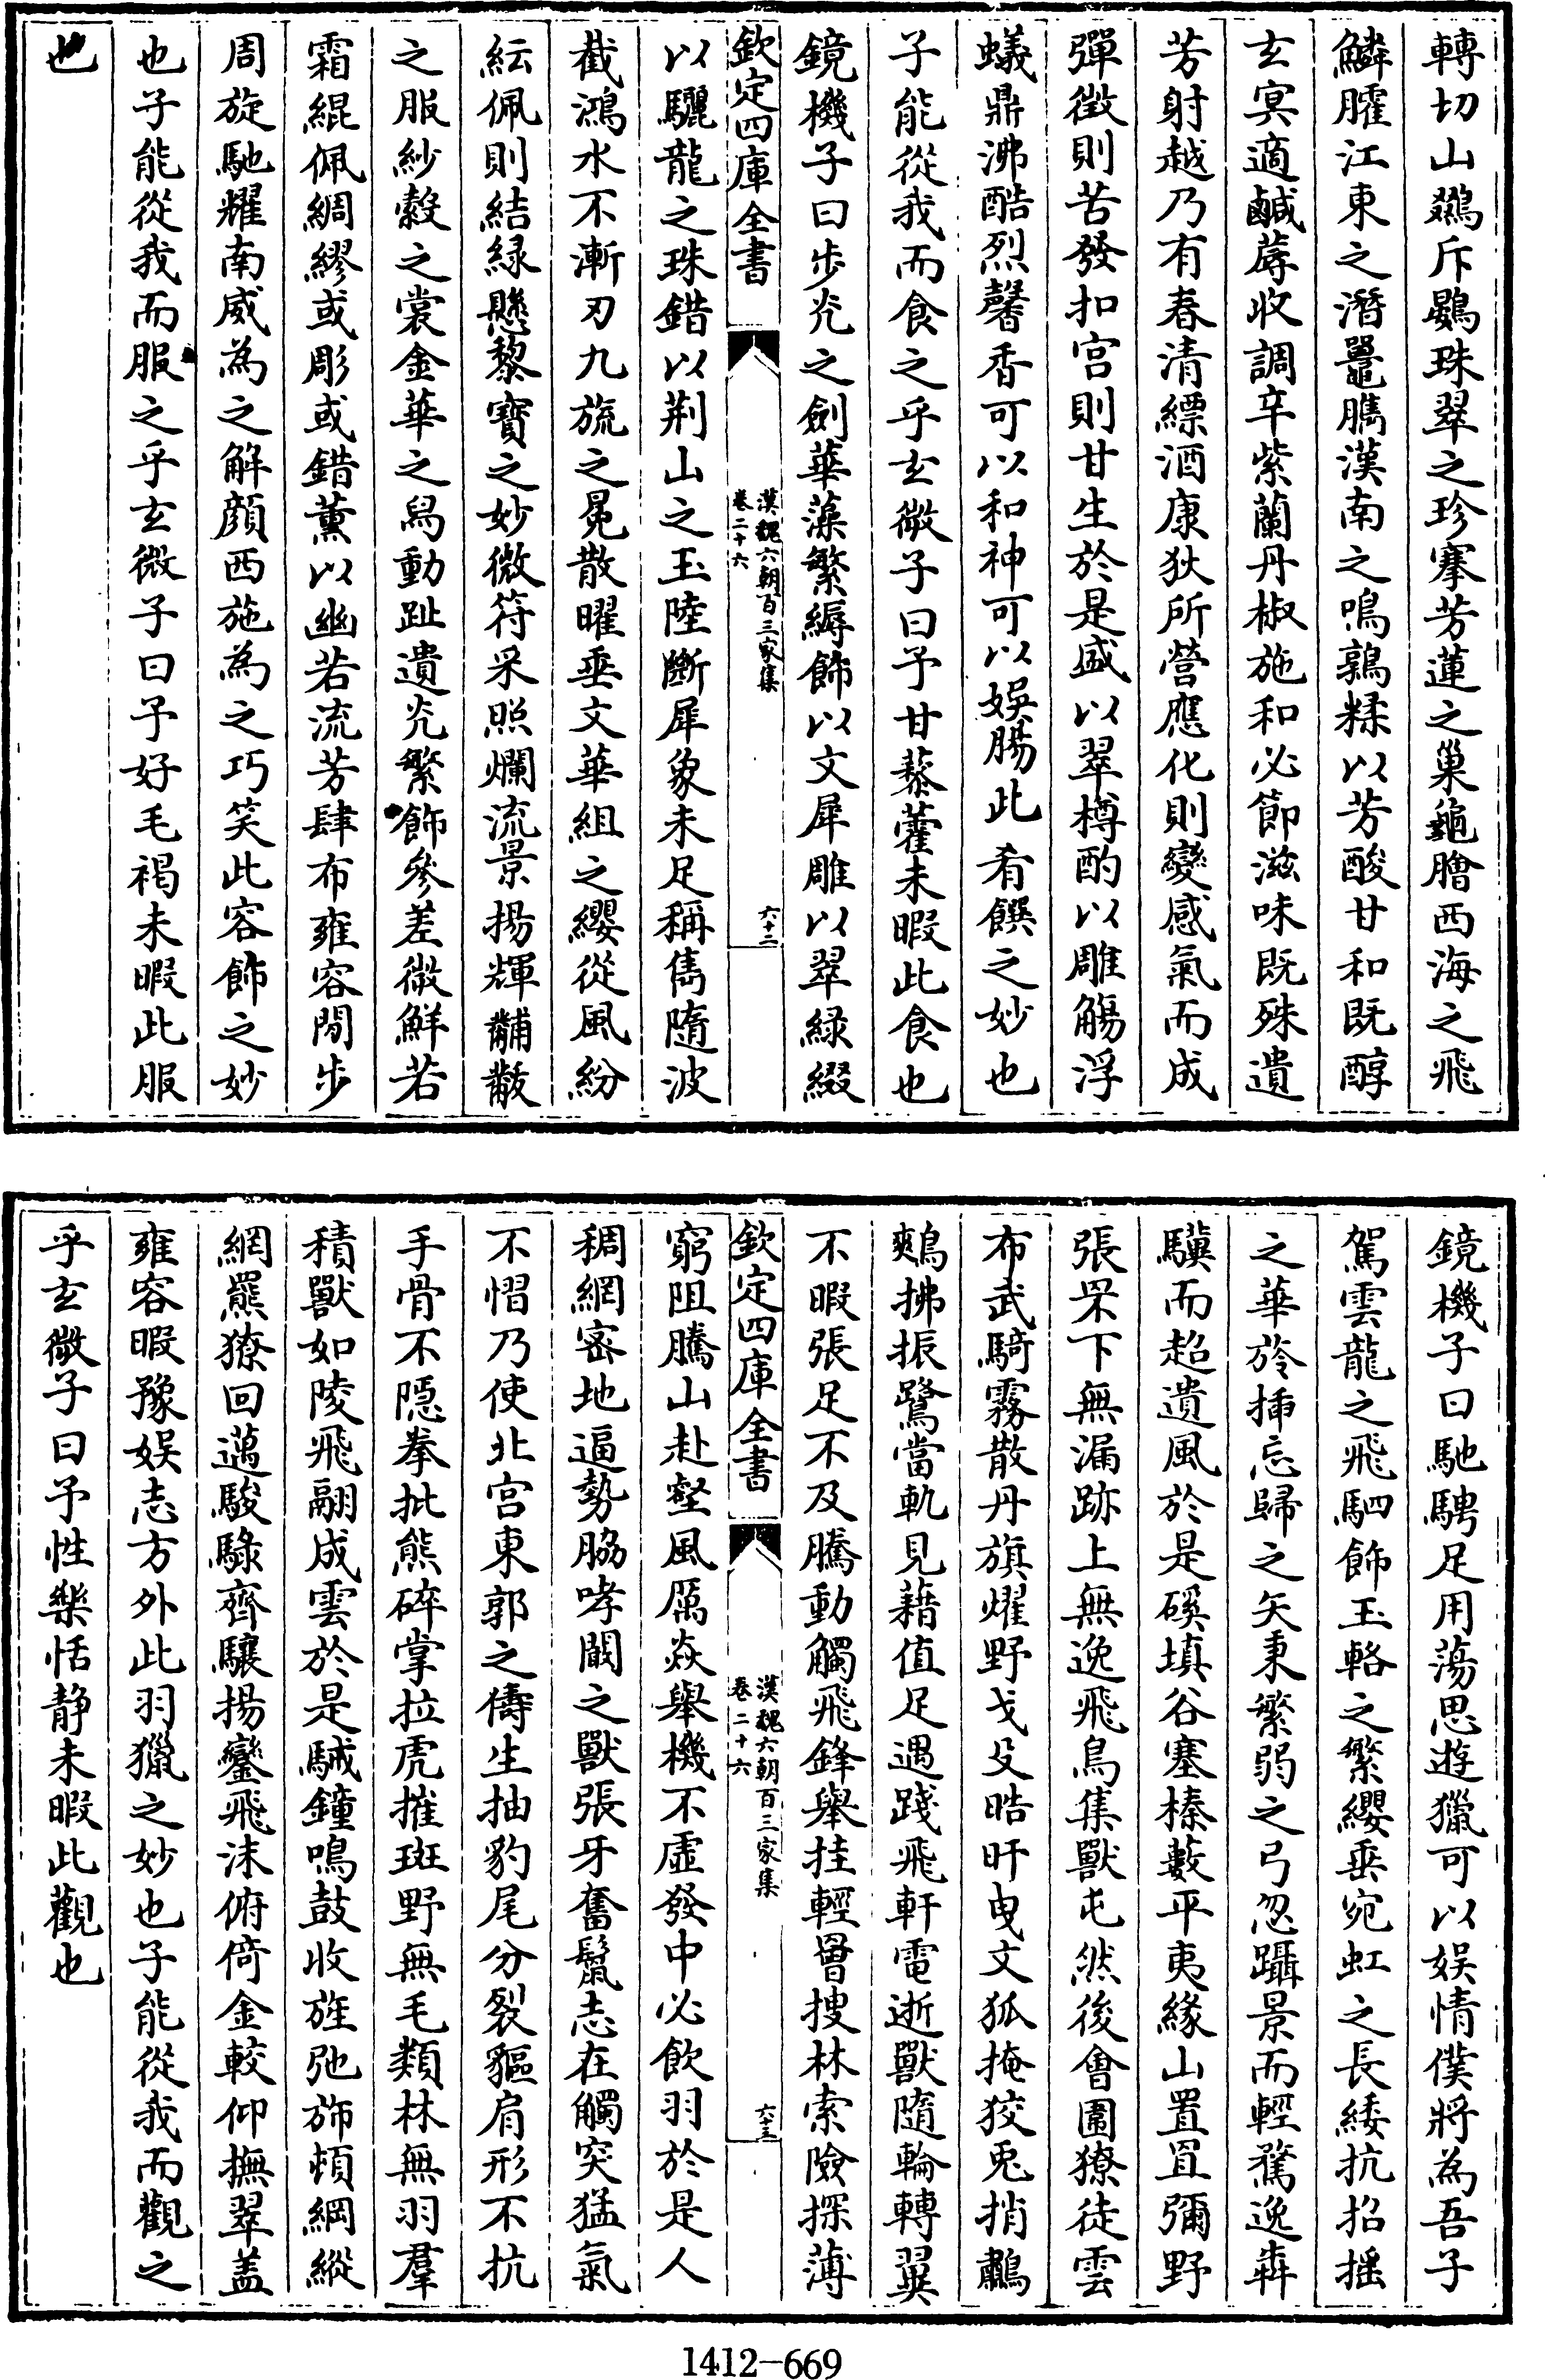 轉切山鵽斥鷃珠翠之珍搴芳蓮之巢龜膾西海之飛
鱗臛江東之潛鼉臇漢南之鳴鶉糅以芳酸甘和既醇
玄冥適鹹蓐收調辛紫蘭丹椒施和必節滋味既殊遺
芳射越乃有春清縹酒康狄所營應化則變感氣而成
彈徵則苦發扣宫則甘生於是盛以翠樽酌以雕觴浮
蟻鼎沸酷烈馨香可以和神可以娛腸此肴饌之妙也
子能從我而食之乎玄微子曰予甘藜藿未暇此食也
鏡機子曰步光之劍華藻繁縟飾以文犀雕以翠緑綴
欽定四庫全書
漢魏六朝百三家集
卷二十六
六十二
以驪龍之珠錯以荆山之玉陸斷犀象未足稱雋隨波
截鴻水不漸刃九旒之冕散曜垂文華組之纓從風紛
紜佩則結緑懸黎寶之妙微符采照爛流景揚輝黼黻
之服紗縠之裳金華之舄動趾遺光繁飾參差微鮮若
霜緄佩綢繆或彫或錯薰以幽若流芳肆布雍容閒步
周旋馳耀南威為之解顔西施為之巧笑此容飾之妙
也子能從我而服之乎玄微子曰予好毛褐未暇此服
也
鏡機子曰馳騁足用蕩思遊獵可以娱情僕將為吾子
駕雲龍之飛駟飾玉輅之繁纓垂宛虹之長緌抗招摇
之華旍揷忘歸之矢秉繁弱之弓忽躡景而輕騖逸犇
驥而超遺風於是磎填谷塞榛藪平夷緣山置罝彌野
張罘下無漏跡上無逸飛鳥集獸屯然後會圍獠徒雲
布武騎霧散丹旗燿野戈殳晧旰曳文狐掩狡兎捎鷫
鷞拂振鷺當軌見藉值足遇踐飛軒電逝獸隨輪轉翼
不暇張足不及騰動觸飛鋒舉挂輕罾搜林索險探薄
欽定四庫全書
漢魏六朝百三家集
卷二十六
六十三
窮阻騰山赴壑風厲猋舉機不虛發中必飲羽於是人
稠網密地逼勢脇哮闞之獸張牙奮鬛志在觸突猛氣
不慴乃使北宫東郭之儔生抽豹尾分裂貙肩形不抗
手骨不隱拳批熊碎掌拉虎摧斑野無毛類林無羽羣
積獸如陵飛翮成雲於是駴鐘鳴鼓收旌弛斾頓綱縱
網羆獠回邁駿騄齊驤揚鑾飛沫俯倚金較仰撫翠盖
雍容暇豫娱志方外此羽獵之妙也子能從我而觀之
乎玄微子曰予性樂恬静未暇此觀也
1412-669